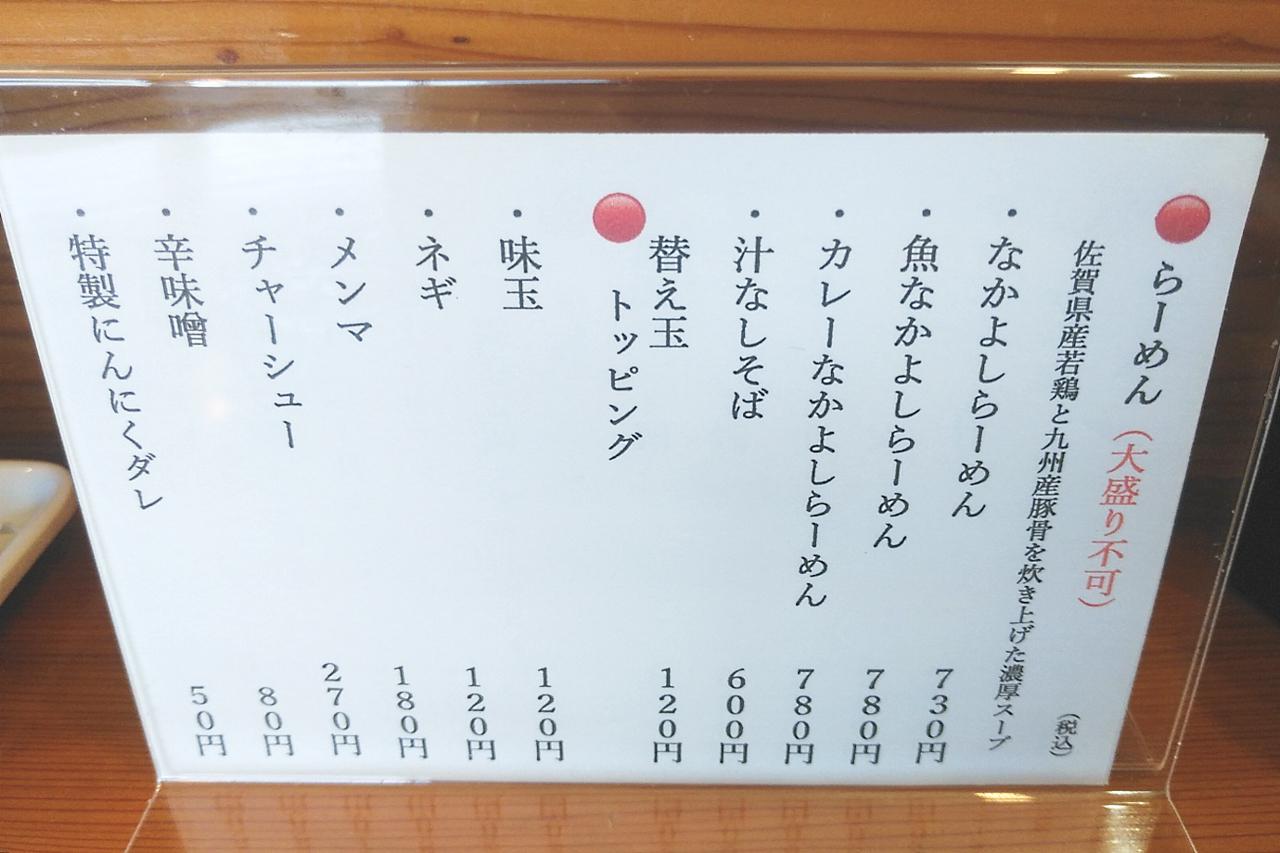 らーめん（大盛り不可）
佐賀県産若鶏と九州産豚骨を炊き上げた濃厚スープ
（税込）
・なかよしらーめん 730円
・魚なかよしらーめん 780円
・カレーなかよしらーめん 780円
・汁なしそば 600円
替え玉 120円
トッピング
・味玉 120円
・ネギ 120円
・メンマ 180円
・チャーシュー 270円
・辛味噌 80円
・特製にんにくダレ 50円